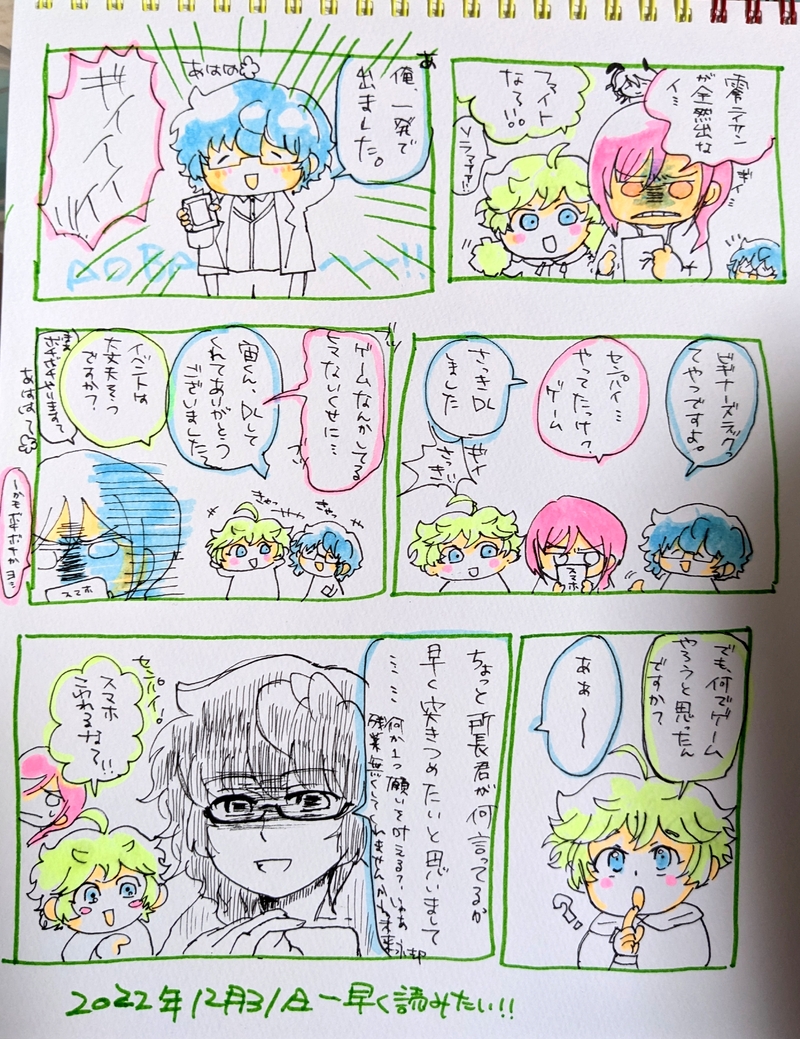 零ライサン
が全然出な
イミ
ファイト
なる!!
ギィ…
あ
俺、一発で
出ました。
あはは
ギィイイイイ
AOBA〜!!
ビギナーズラックっ
てやつですよ。
センパイ…
やってたっけ?
ゲーム
さっきDL
しました
さっき…
スマホ
ゲームなんかしてる
ヒマないくせに…
宙くん、DLして
くれてありがとう
ございました。
イベントは
大丈夫そう
ですか?
きゃっ
きゃっ
あはは
スマホ
でも、何でゲーム
やろうと思ったん
ですか?
あぁ〜
ちょっと所長君が何言ってるか
早く突きつめたいと思いまして
……何か1つ願いを叶える?じゃあ
残業無くしてくれませんかね未来永劫
センパイ!
スマホ
こわれるなて!!!
2022年12月31日一早く読みたい!!